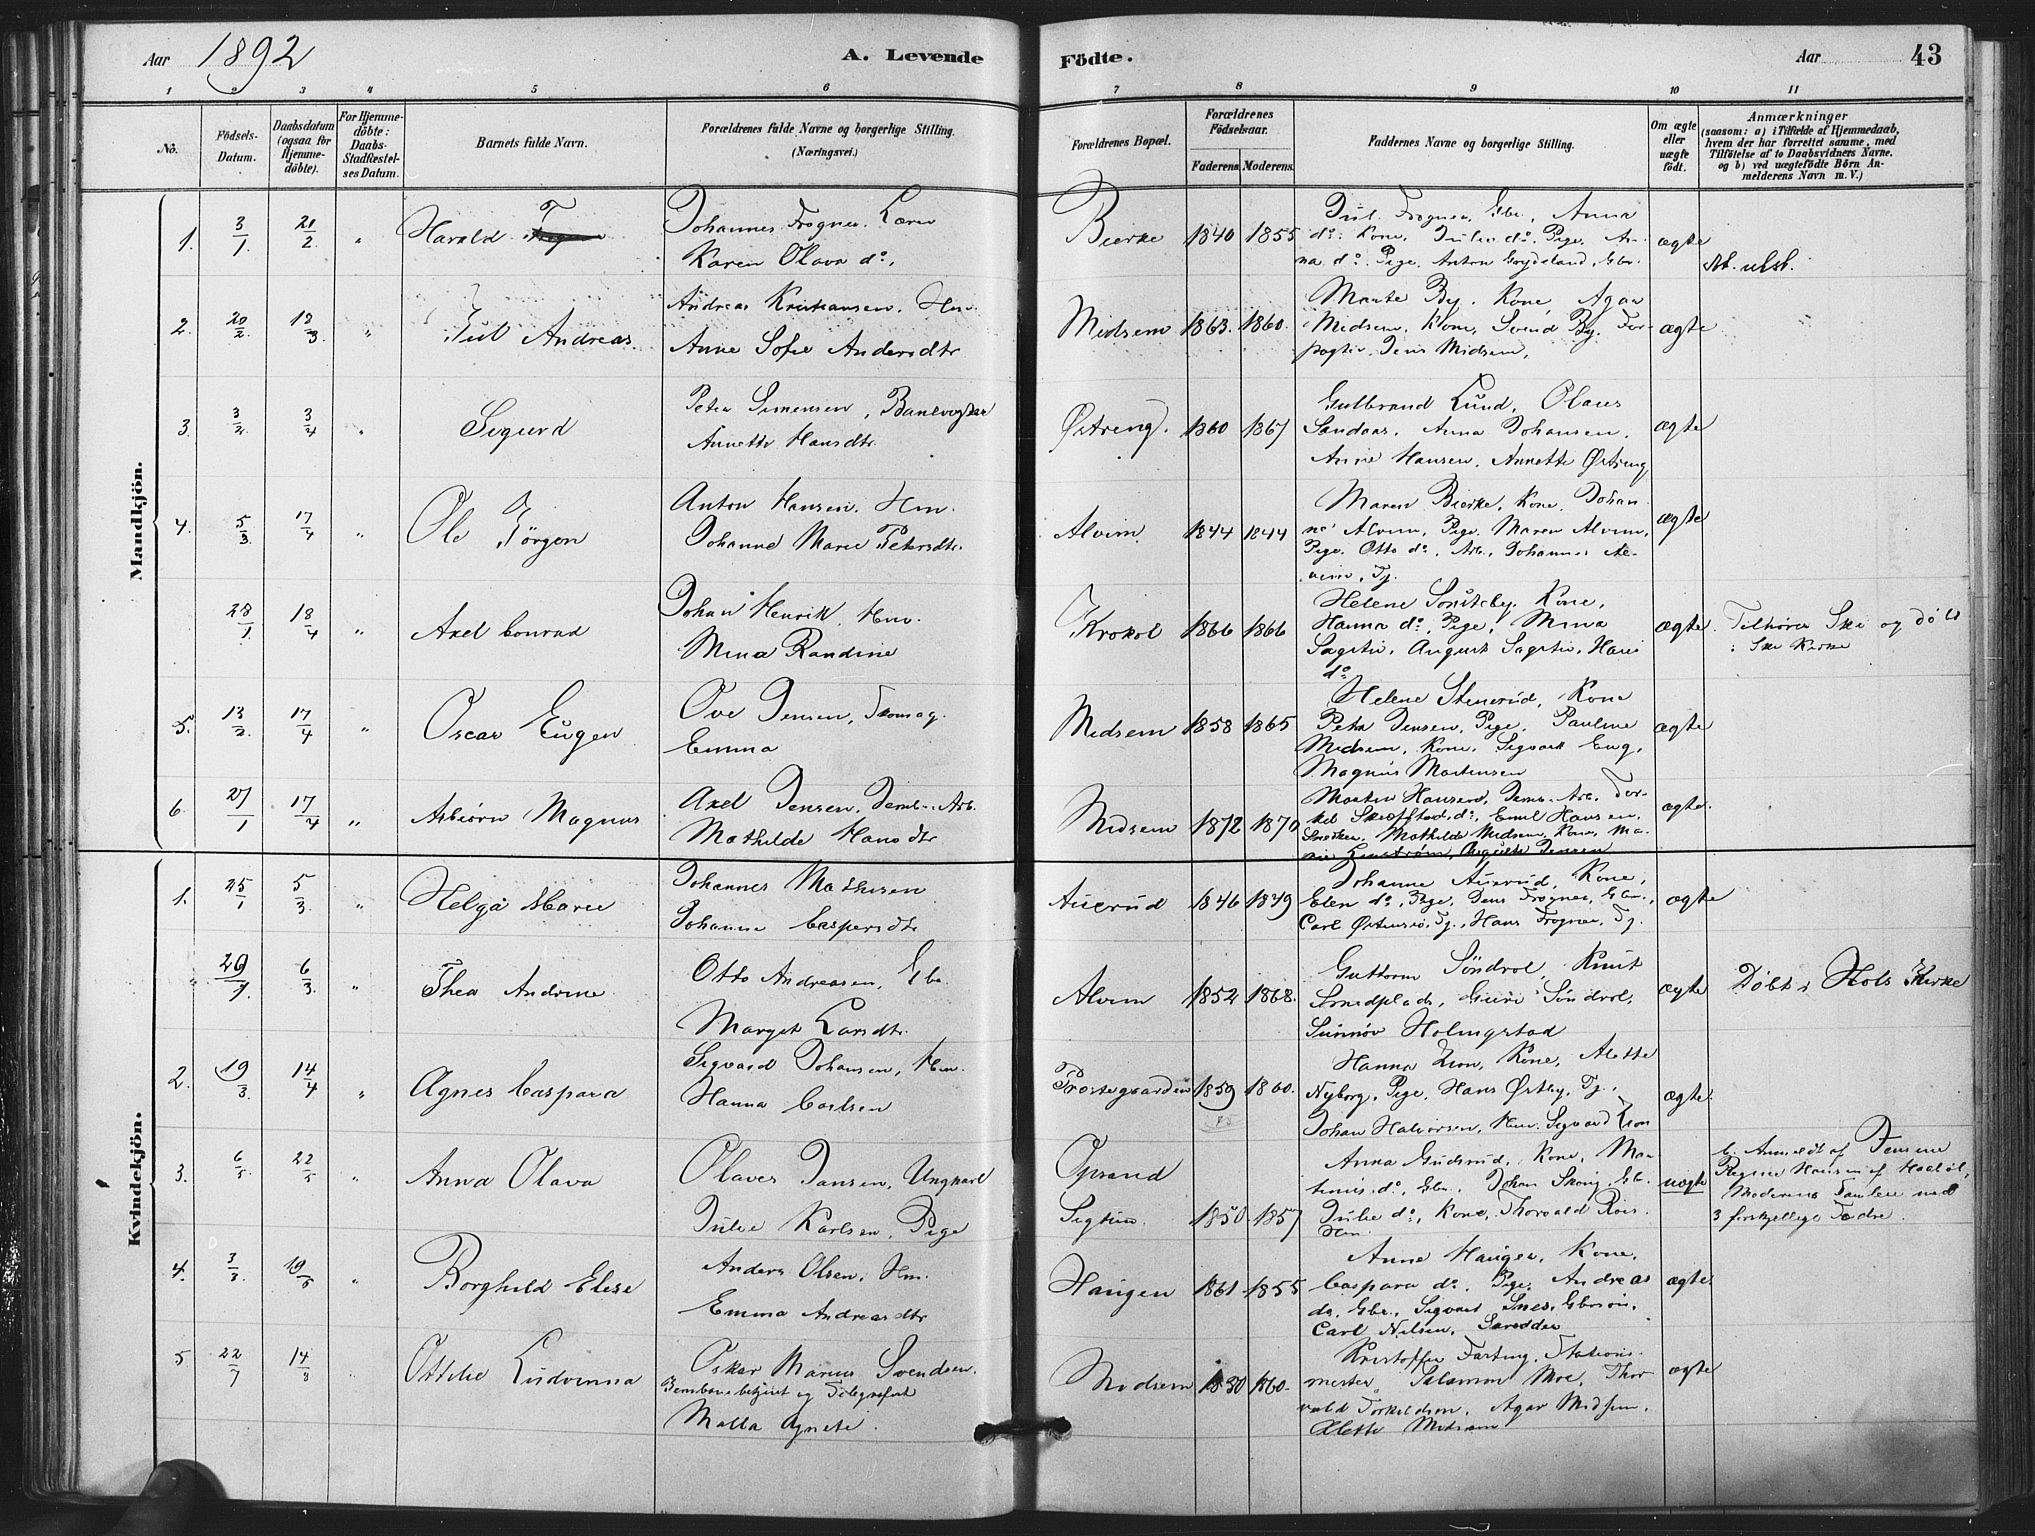 Aar 1892 A. Levende Födte. Aar 43
1 2 3 4 5 6 7 8 9 10 11
No.
Födsels-Datum.
Daabsdatum (ogsaa for Hjemmedöbte).
For Hjemmedöbte: Daabs-Stadfæstelses Datum.
Barnets fulde Navn.
Forældrenes fulde Navne og borgerlige Stilling.
(Næringsvei.)
Forældrenes Bopæl.
Forældrenes Födselsaar.
Faderens Moderens
Faddernes Navne og borgerlige Stilling.
Om ægte eller uægte födt.
Anmærkninger
(saasom: a) i Tilfælde af Hjemmedaab,
hvem der har forrettet samme, med
Tilföielse af to Daabsvidners Navne.
og b) ved uægtefödte Börn An-
melderens Navn m. V.)
Mandkjön.
1. 3/1 21/2 " Harald
Johannes Frogner, Lærer
Karen Olava do,
Bierke 1840 1855
Jul. Frogner, Gbr., Anna
do, Kone, Julie do, Pige, An-
na do. Pige, Anton Grydeland, Gbr.
ægte
2. 20/2 13/3 " Jul Andreas
Andreas Kristiansen, Hm.
Anne Sofie Andersdtr
Midsem 1863. 1860.
Marte By, Kone, Agaa
Midsem, Kone, Svend By, For-
pagter, Jens Midsem,
ægte
3. 3/2 3/4 " Sigurd
Peter Simensen, Banevogter
Annette Hansdtr.
Østreng. 1860 1867
Gulbrand Lund, Olaus
Sandaas, Anna Johansen,
Anne Hansen, Annette Østreng
ægte
4. 5/3 17/4 " Ole Jörgen
Anton Hansen, Hm.
Johanne Marie Petersdtr.
Alvim. 1844 1844
Maren Bierke, Kone, Johan-
ne Alvim, Pige, Maren Alvim,
Pige. Otto do, Arb., Johannes Al-
vim, Tj.
ægte
28/1 18/4 " Axel Conrad
Johan Henrik, Hm.
Mina Randine
Krokol 1866 1866
Helene Sonsteby, Kone,
Hanna do, Pige, Mina
Sagstu, August Sagstu, Hans
do
ægte. Tilhører Ski og døbt
i Ski Kirke
5. 13/2 17/4 " Oscar Eugen
Ove Jensen, Skomag.
Emma
Midsem 1858 1865
Helene Stenerud, Kone
Petra Jensen, Pige, Pauline
Midsem, Kone, Sigvart Eng,
Magnus Mortensen
ægte
6. 27/1 17/4 " Asbiørn Magnus
Axel Jensen, Jernb.-Arb.
Mathilde Hansdtr
Midsem 1872 1870
Martin Hansen, Jernb. Arb. Tor-
kel Skrefstad, do, Emil Hansen,
Snedker, Mathilde Midsem, Kone, Ma-
Augusta Jensen
ægte.
Kvindekjön.
1. 25/1 5/3 " Helga Marie
Johannes Mathisen
Johanne Caspersdtr
Auerud 1846 1849
Johanne Auerud, Kone,
Elen do, Pige, Jens Frogner, Gbr.,
Carl Østensio, Tj., Hans Frogner, Tj.
ægte
" 29/1 6/3 " Thea Andrine
Otto Andreasen, Gbr
Marget Larsdtr.
Alvim 1852 1868.
Guttorm Söndrol, Knut
Smedplads, Guri Söndrol,
Sunnöv Holmgstad
ægte Döbt i Hols Kirke
2. 19/3 14/4 " Agnes Caspara
Sigvard Johansen, Hm.
Hanna Carlsen
Prestegaarden 1859 1860.
Hanna Lion, Kone, Alette
Nyborg, Pige, Hans Østby, Tj.,
Johan Halvorsen, Hm. Sigvard Lion
ægte.
3. 6/5 22/5 " Anna Olava
Olaves Jansen, Ungkarl
Julie Karlsen, Pige
Opsand
Sigtun 1850 1857
Anna Gudsrud, Kone, Ma-
tinus do, Gbr., Johan Skong, Gbr.
Julie do, Kone, Thorvald Röis
Hm.
uægte
b. Anmeldt af
Moderens Familie med
3 forskjellige Fædre.
4. 3/3 19/5 " Borghild Elise
Anders Olsen, Hm.
Emma Andreasdtr
Haugen 1861 1855
Anne Haugen, Kone,
Caspara do, Pige, Andreas
do, Gbr., Sigvart Snes, Gbrsön,
Carl Nilsen,
ægte.
5 22/7 14/8 Ottilie Ludvinna
Oskar Marius Svendsen.
Jernbanebetjent og Telegrafist
Malla Agnete.
Midsem 1830 1860.
Kristoffer Farting, Stations-
mester, Salamon Moe, Thor-
vald Torkildsen, Agar Midsem,
Alette Midsem
ægte